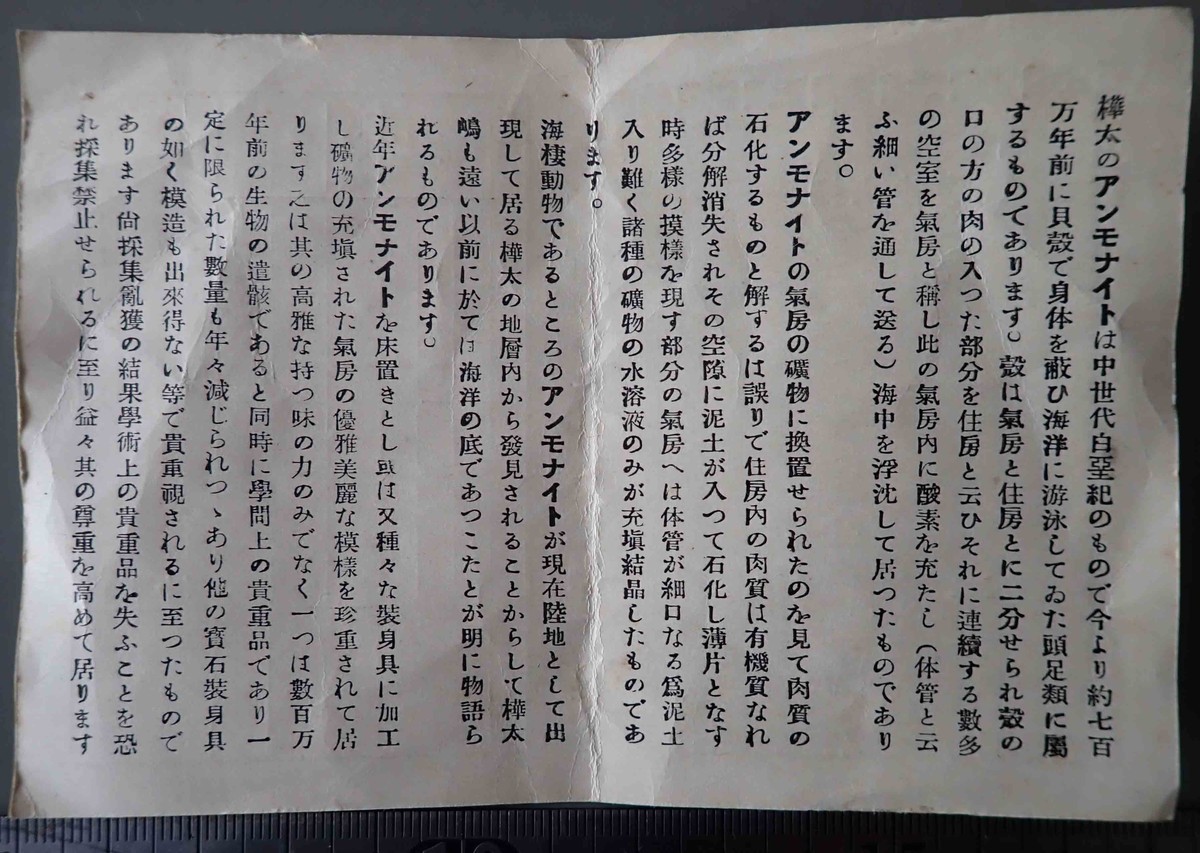 樺太のアンモナイトは中世代白堊紀のもので今より約七百
万年前に貝殻で身体を蔽ひ海洋に游泳してゐた頭足類に屬
するものてあります。殻は氣房と住房とに二分せられ殻の
口の方の肉の入つた部分を住房と云ひそれに連續する數多
の空室を氣房と稱し此の氣房内に酸素を充たし（体管と云
ふ細い管を通して送る）海中を浮沈して居つたものであり
ます。
アンモナイトの氣房の礦物に換置せられたのを見て肉質の
石化するものと解するは誤りで住房内の肉質は有機質なれ
ば分解消失されその空隙に泥土が入つて石化し薄片となす
時多樣の摸樣を現す部分の氣房へは体管が細口なる爲泥土
入り難く諸種の礦物の水溶液のみが充塡結晶したものであ
ります。
海棲動物であるところのアンモナイトが現在陸地として出
現して居る樺太の地層内から發見されることからして樺太
嶋も遠い以前に於ては海洋の底であつこたとが明に物語ら
れるものであります。
近年アンモナイトを床置きとし或は又種々な裝身具に加工
し礦物の充塡された氣房の優雅美麗な模樣を珍重されて居
ります之は其の高雅な持つ味の力のみでなく一つは數百万
年前の生物の遺骸であると同時に學問上の貴重品であり一
定に限られた數量も年々減じられつゝあり他の寶石裝身具
の如く模造も出來得ない等で貴重視されるに至つたもので
あります尙採集亂獲の結果學術上の貴重品を失ふことを恐
れ採集禁止せられるに至り益々其の尊重を高めて居ります